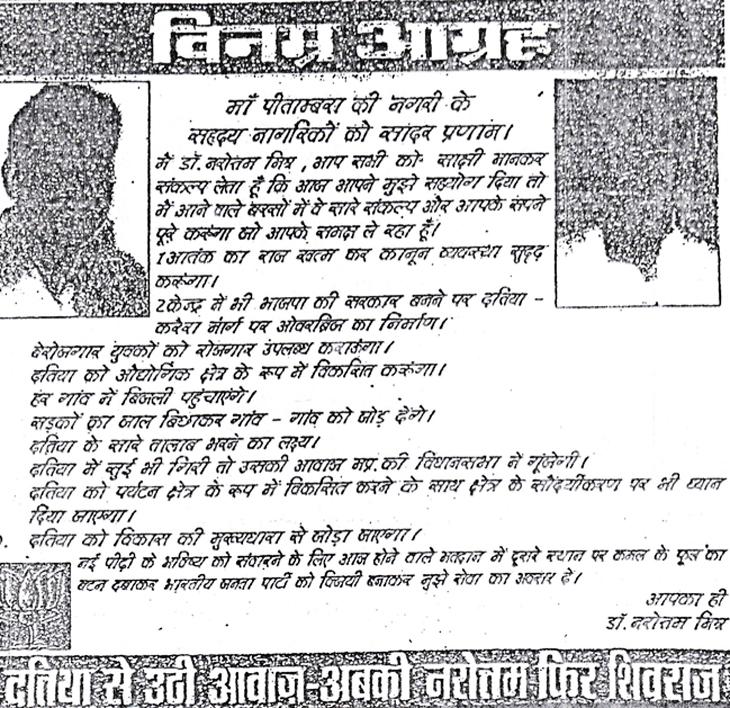 विनम्र आग्रह
माँ पीताम्बरा की नगरी के
सहृदय नागरिकों को सादर प्रणाम।
मैं डॉ. नरोत्तम मिश्र, आप सभी को साक्षी मानकर
संकल्प लेता हूँ कि आज आपने मुझे सहयोग दिया तो
मैं आने वाले बरसों में वे सारे संकल्प और आपके सपने
पूरे करूंगा जो आपके समक्ष ले रहा हूँ।
1आतंक का राज खत्म कर कानून व्यवस्था सुदृढ़
करूंगा।
2केन्द्र में भी भाजपा की सरकार बनने पर दतिया -
करेरा मार्ग पर ओवरब्रिज का निर्माण।
बेरोजगार युवकों को रोजगार उपलब्ध कराऊंगा।
दतिया को औद्योगिक क्षेत्र के रूप में विकसित करूंगा।
हर गांव में बिजली पहुंचाएंगे।
सड़कों का जाल बिछाकर गांव - गांव को जोड़ देंगे।
दतिया के सारे तालाब भरने का लक्ष्य।
दतिया में सुई भी गिरी तो उसकी आवाज मप्र. की विधानसभा में गूंजेगी।
दतिया को पर्यटन क्षेत्र के रूप में विकसित करने के साथ क्षेत्र के सौंदर्यीकरण पर भी ध्यान
दिया जाएगा।
दतिया को विकास की मुख्यधारा से जोड़ा जाएगा।
नई पीढ़ी के भविष्य को संवारने के लिए आज होने वाले मतदान में दूसरे स्थान पर कमल के फूल का
बटन दबाकर भारतीय जनता पार्टी को विजयी बनाकर मुझे सेवा का अवसर दें।
आपका ही
डॉ. नरोत्तम मिश्र
दतिया से उठी आवाज-अबकी नरोत्तम फिर शिवराज